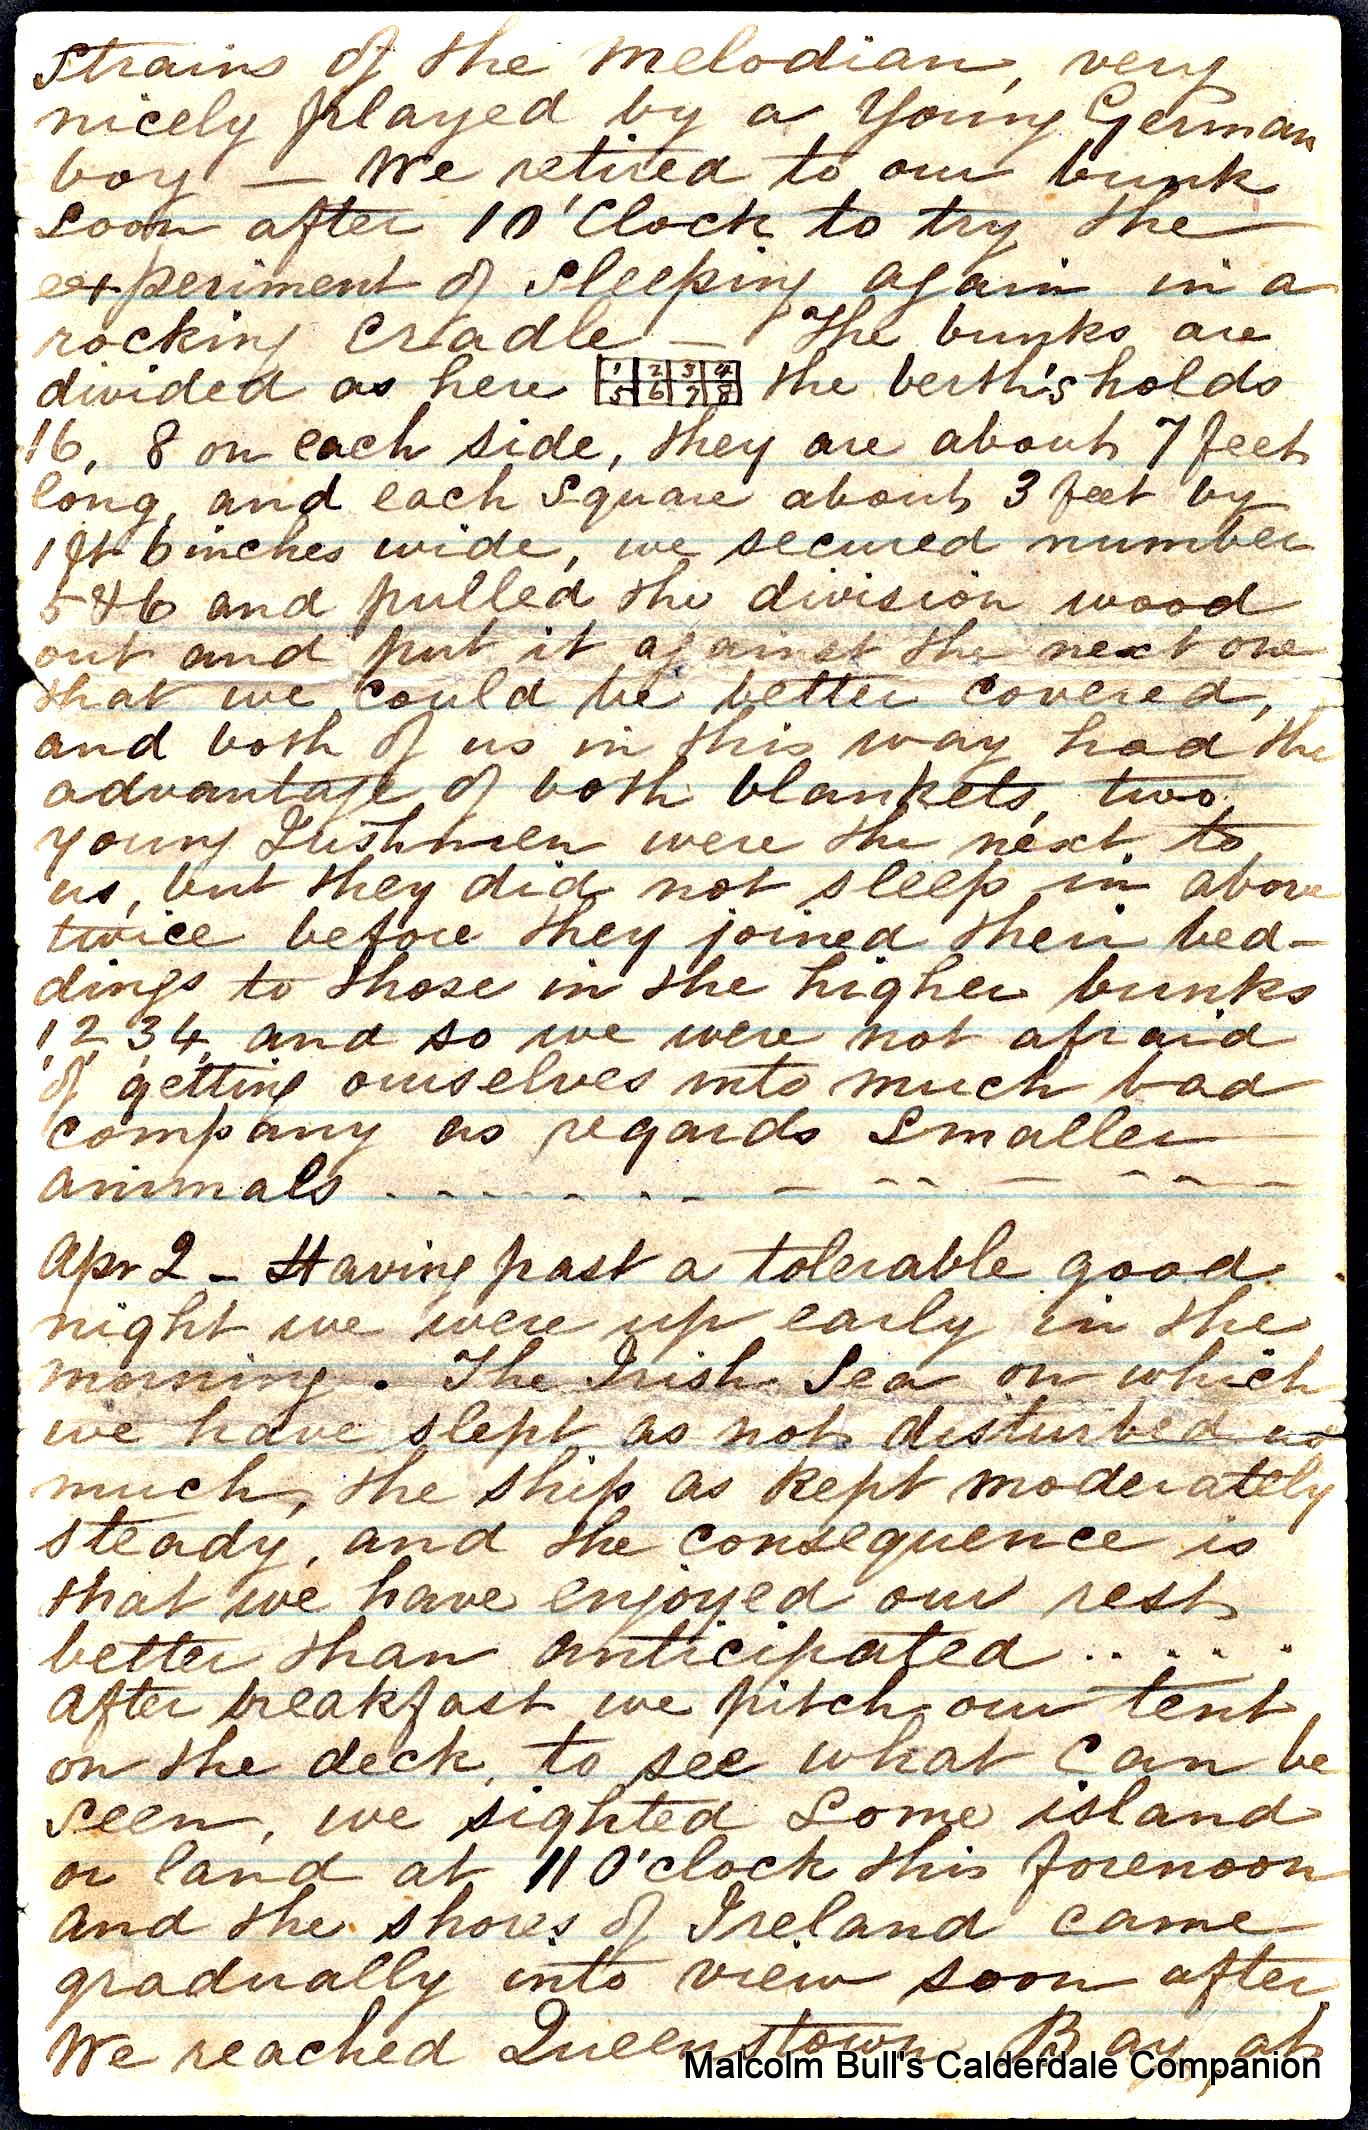 Strains of the melodian, very
nicely played by a Young German
boy — We retired to our bunk
Soon after 10'Clock to try the
experiment of Sleeping again in a
rocking Cradle — The bunks are
divided as here 1 2 3 4 5 6 7 8 the berth's holds
16, 8 on each side, they are about 7 feet
long, and each Square about 3 feet by
1 ft 6 inches wide, we secured number
5 & 6 and pulled the division wood
out and put it against the next one
that we could be better covered,
and both of us in this way had the
advantage of both blankets, two
young Irishmen were the next to
us, but they did not sleep in above
twice before they joined their bed-
dings to those in the higher bunks
1, 2, 3, 4, and so we were not afraid
of getting ourselves into much bad
company as regards Smaller
animals - - - - - - - — - - — - - -
Apr 2 - Having past a tolerable good
night we were up early in the
morning. The Irish Sea on which
we have slept as not disturbed us
much, the ship as kept moderately
steady, and the consequence is
that we have enjoyed our rest
better than anticipated . . . . . .
After breakfast we pitch our tent
on the deck, to see what can be
seen, we sighted Some island
or land at 11 O'clock this forenoon
and the shores of Ireland came
gradually into view soon after
We reached Queenstown Bay, at
Malcolm Bull's Calderdale Companion